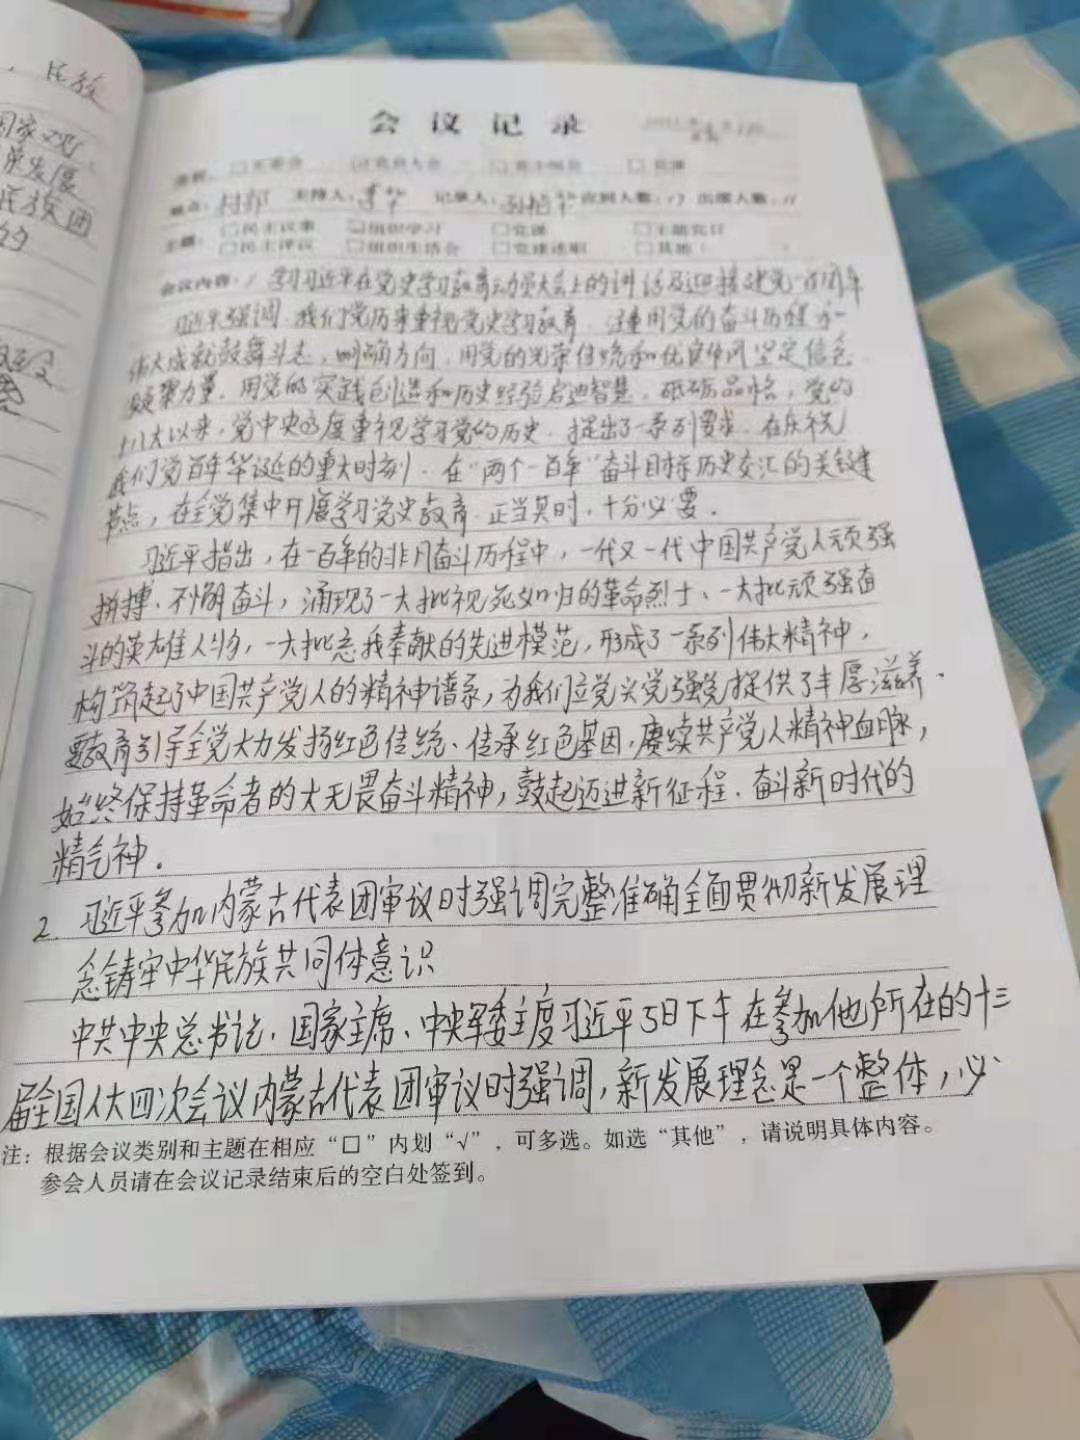 ，民族
国家观
荣发展
民族团
的
会议记录
类别： □支委会 ☑党员大会 □党小组会 □党课
地点：村部 主持人：李华 记录人： 应到人数：17 出席人数：11
主题： □民主议事 □组织学习 □党课 □主题党日
□民主评议 □组织生活会 □党建述职 □其他（
会议内容：1 学习习近平在党史学习教育动员大会上的讲话及迎接建党一百周年
习近平强调.我们党历来重视党史学习教育.注重用党的奋斗历程和
伟大成就鼓舞斗志，明确方向.用党的光荣传统和优良作风坚定信念
凝聚力量.用党的实践创造和历史经验启迪智慧.砥砺品格，党的
十八大以来，党中央高度重视学习党的历史.提出了一系列要求.在庆祝
我们党百年华诞的重大时刻.在“两个一百年”奋斗目标历史交汇的关键
节点，在全党集中开展学习党史教育.正当其时，十分必要.
习近平指出，在一百年的非凡奋斗历程中，一代又一代中国共产党人顽强
拼搏、不懈奋斗，涌现了一大批视死如归的革命烈士、一大批顽强奋
斗的英雄人物，一大批忘我奉献的先进模范，形成了一系列伟大精神，
构筑起了中国共产党人的精神谱系，为我们立党兴党强党提供了丰厚滋养.
要教育引导全党大力发扬红色传统、传承红色基因.赓续共产党人精神血脉，
始终保持革命者的大无畏奋斗精神，鼓起迈进新征程.奋斗新时代的
精气神.
2. 习近平参加内蒙古代表团审议时强调完整准确全面贯彻新发展理
念铸牢中华民族共同体意识
中共中央总书记.国家主席、中央军委主席习近平5日下午在参加他所在的十三
届全国人大四次会议内蒙古代表团审议时强调，新发展理念是一个整体，必
注：根据会议类别和主题在相应“□”内划“√”，可多选。如选“其他”，请说明具体内容。
参会人员请在会议记录结束后的空白处签到。